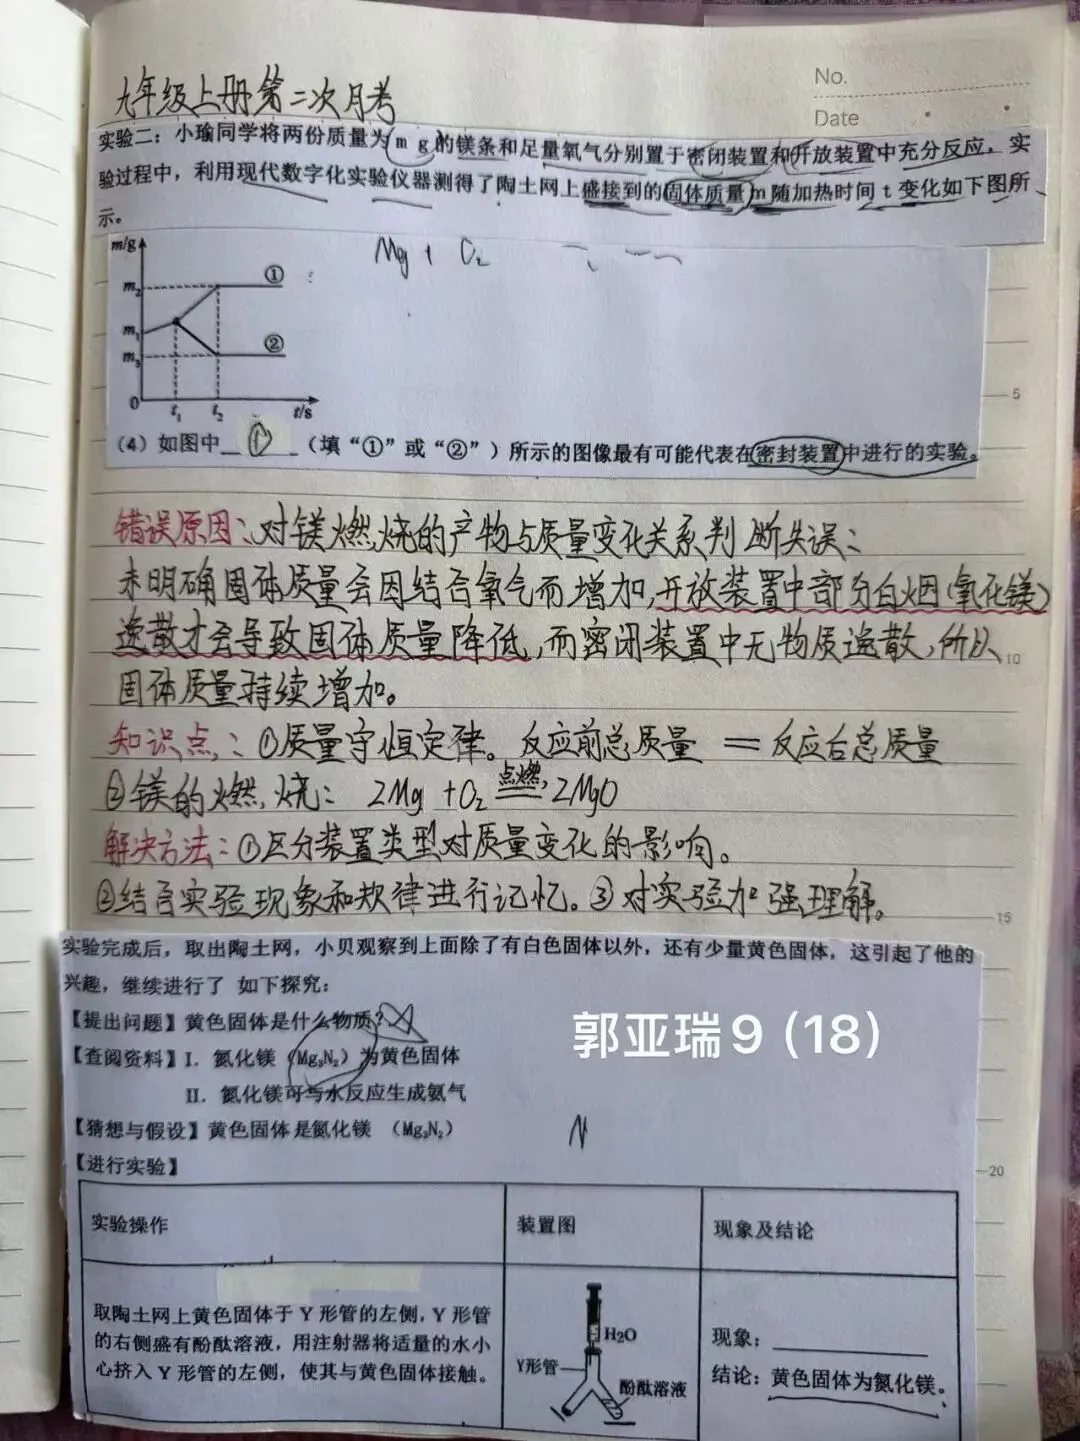 No.
Date
九年级上册第二次月考
实验二：小瑜同学将两份质量为 m g 的镁条和足量氧气分别置于密闭装置和开放装置中充分反应，实
验过程中，利用现代数字化实验仪器测得了陶土网上盛接到的固体质量 m 随加热时间 t 变化如下图所
示。
Mg + O₂
m/g
m₂
m₁
m₃
0
t₁
t₂
t/s
①
②
（4）如图中 ① （填“①”或“②”）所示的图像最有可能代表在密封装置中进行的实验。
错误原因：对镁燃烧的产物与质量变化关系判断失误：
未明确固体质量会因结合氧气而增加，开放装置中部分白烟（氧化镁）
逸散才会导致固体质量降低，而密闭装置中无物质逸散，所以
固体质量持续增加。
知识点：①质量守恒定律。反应前总质量 = 反应后总质量
②镁的燃烧： 2Mg + O₂ 点燃 2MgO
解决方法：①区分装置类型对质量变化的影响。
②结合实验现象和规律进行记忆。③对实验加强理解。
5
10
15
20
实验完成后，取出陶土网，小贝观察到上面除了有白色固体以外，还有少量黄色固体，这引起了他的
兴趣，继续进行了 如下探究：
【提出问题】黄色固体是什么物质？
【查阅资料】I. 氮化镁（Mg₃N₂）为黄色固体
II. 氮化镁可与水反应生成氨气
【猜想与假设】黄色固体是氮化镁 （Mg₃N₂）
N
【进行实验】
郭亚瑞9（18）
实验操作
装置图
现象及结论
取陶土网上黄色固体于 Y 形管的左侧，Y 形管
的右侧盛有酚酞溶液，用注射器将适量的水小
心挤入 Y 形管的左侧，使其与黄色固体接触。
H₂O
Y形管
酚酞溶液
现象：
结论：黄色固体为氮化镁。